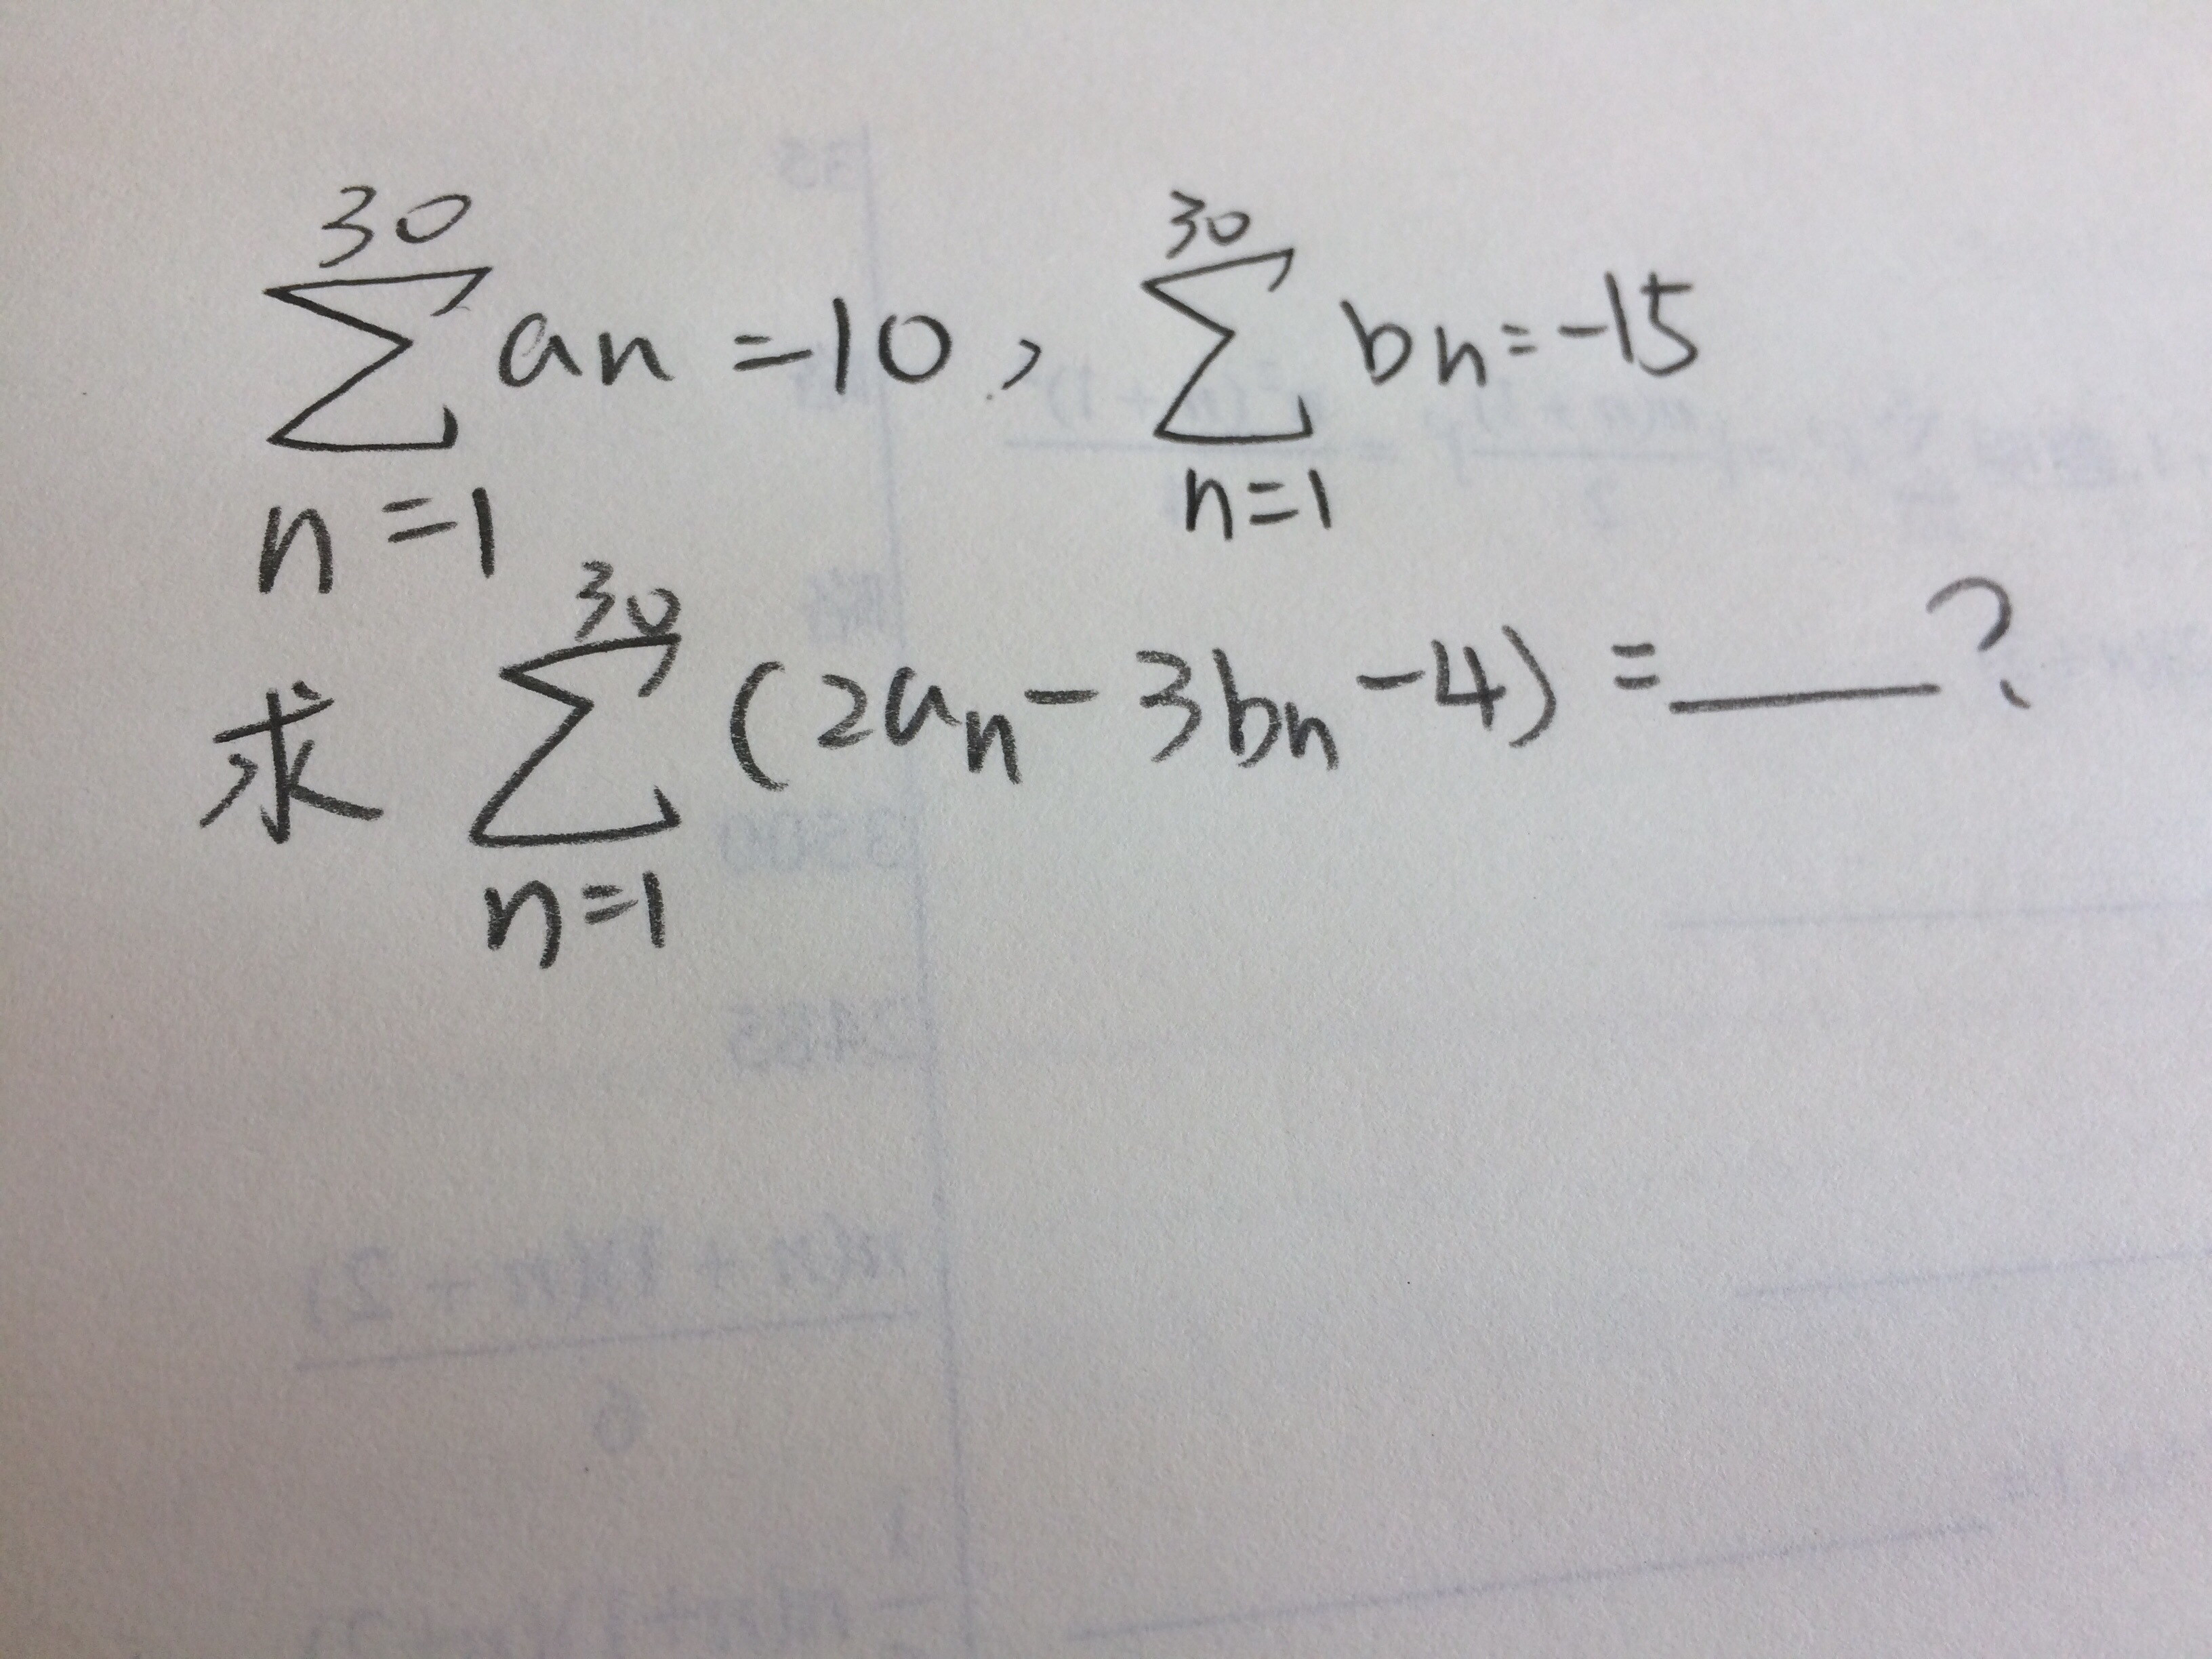 \sum_{n=1}^{30} a_n = 10, \sum_{n=1}^{30} b_n = -15
求 \sum_{n=1}^{30} (2a_n - 3b_n - 4) = ____?